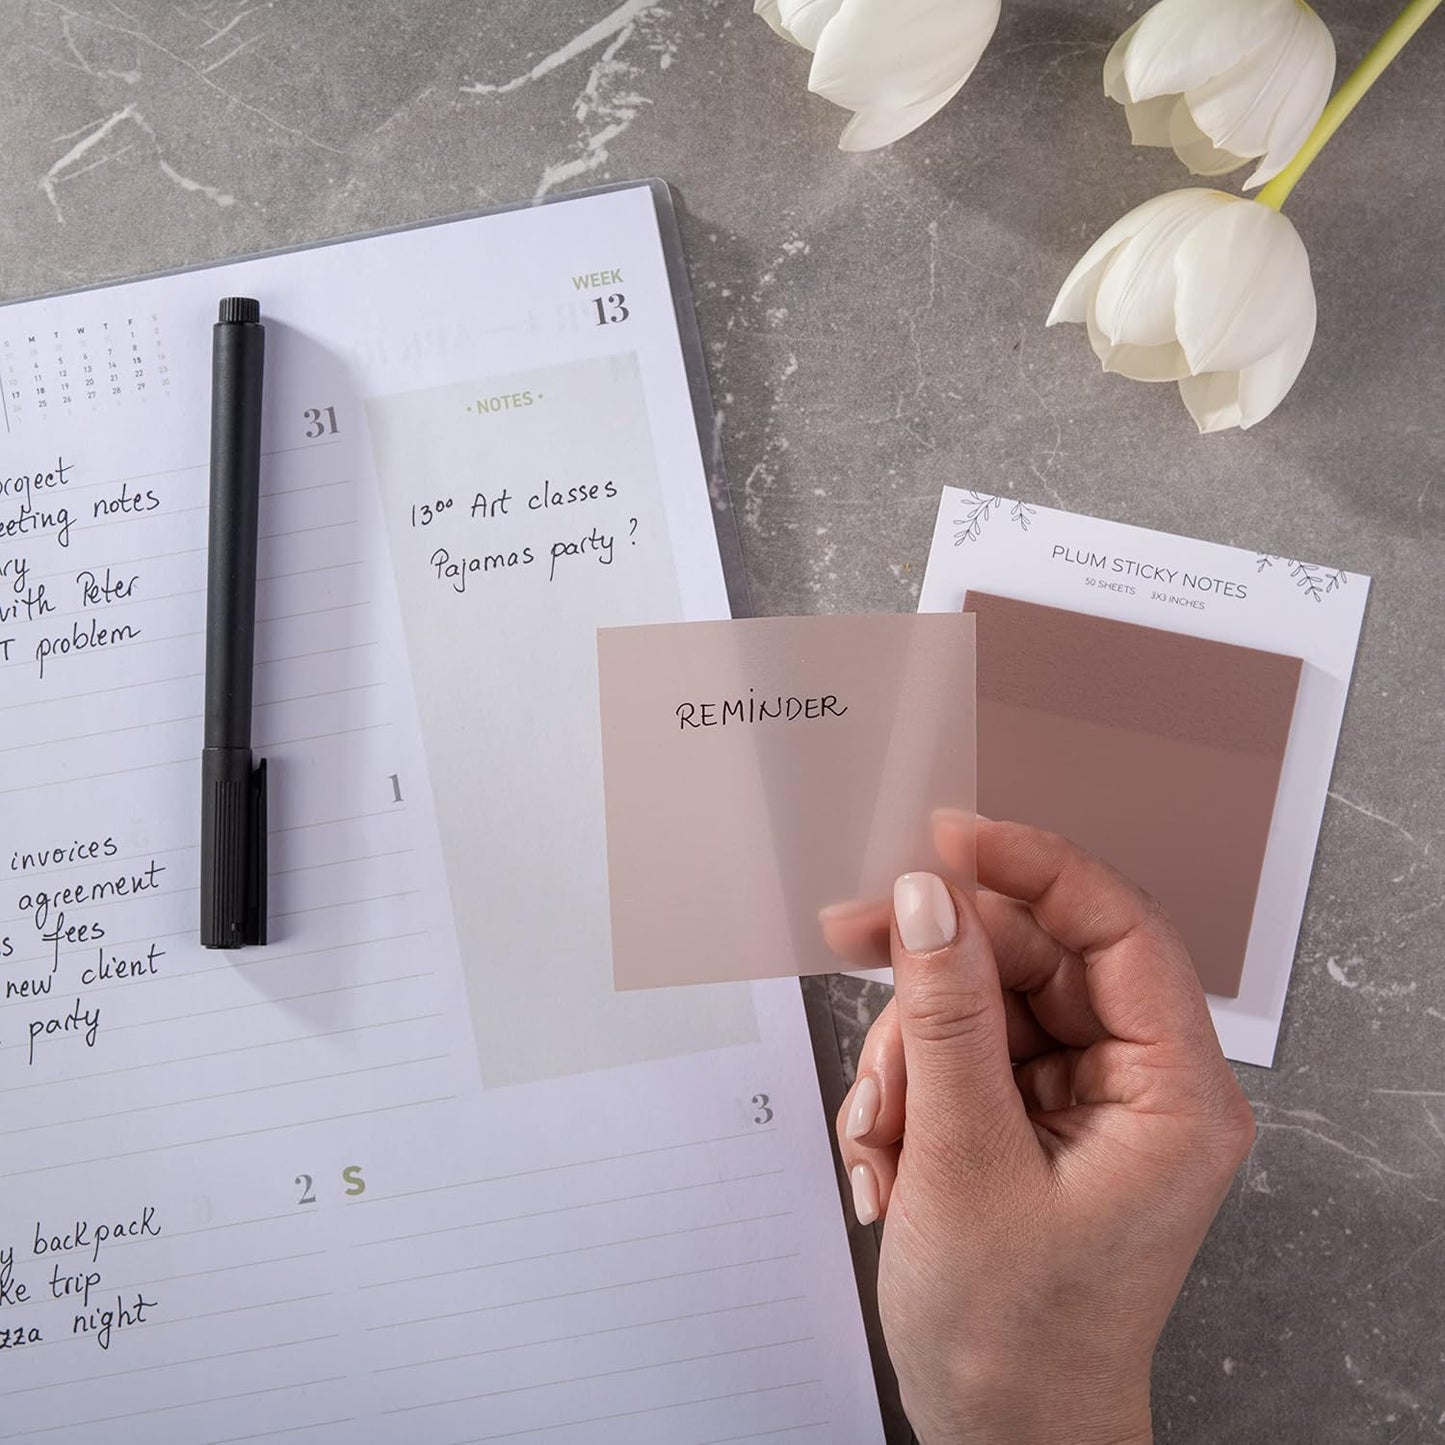 WEEK
13
S M T W T F S
31
• NOTES •
project
meeting notes
with Peter
problem
13⁰⁰ Art classes
Pajamas party?
PLUM STICKY NOTES
50 SHEETS 3X3 INCHES
REMINDER
1
invoices
agreement
fees
new client
party
3
2 S
backpack
trip
night